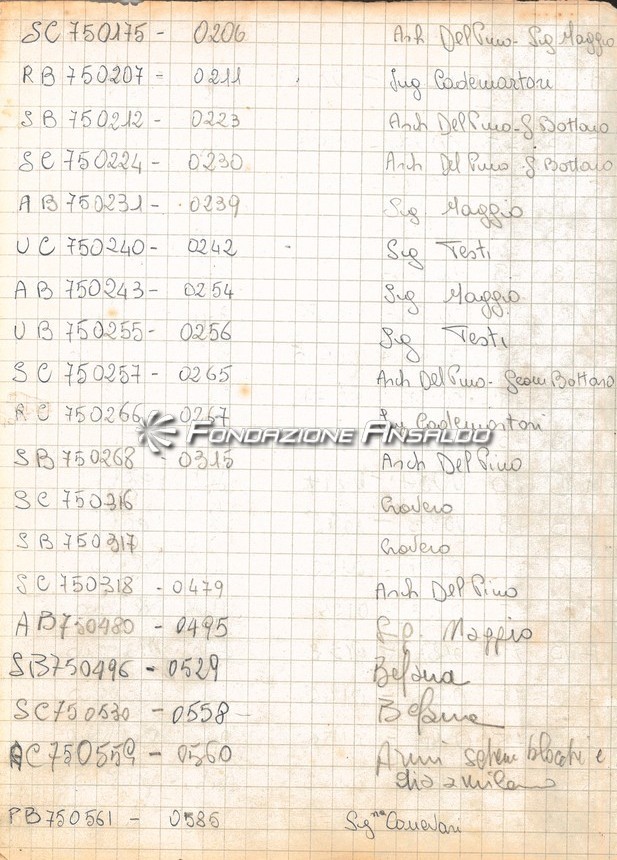 SC 750175 - 0206 Arch Del Pino - Sig Maggio
RB 750207 - 0211 Ing Cademartori
SB 750212 - 0223 Arch Del Pino - G Bottaro
SC 750224 - 0230 Arch Del Pino - G Bottaro
AB 750231 - 0239 Sig Maggio
UC 750240 - 0242 Sig Testi
AB 750243 - 0254 Sig Maggio
UB 750255 - 0256 Sig Testi
SC 750257 - 0265 Arch Del Pino - Geom Bottaro
RC 750266 - 0267 Ing Cademartori
FONDAZIONE ANSALDO
SB 750268 - 0315 Arch Del Pino
SC 750316 Cravero
SB 750317 Cravero
SC 750318 - 0479 Arch Del Pino
AB 750480 - 0495 Maggio
SB 750496 - 0529 Befana
SC 750530 - 0558 Befana
C 750559 - 0560
PB 750561 - 0585 Sig.na Canevari